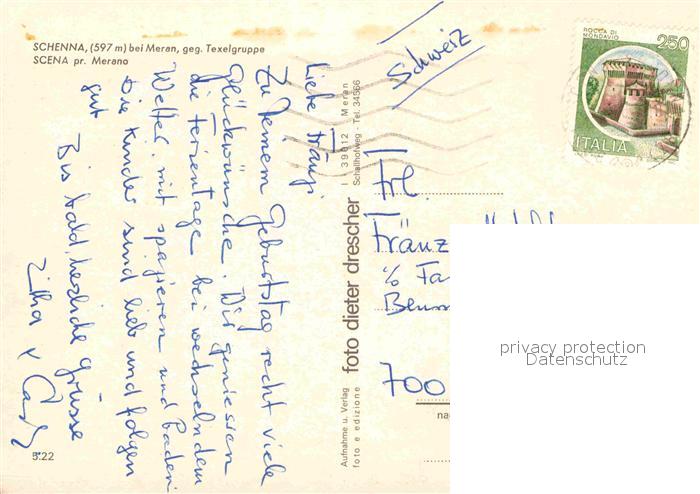 SCHENNA, (597 m) bei Meran, geg. Texelgruppe
SCENA pr. Merano
Liebe Fränzi
Zu Deinem Geburtstag recht viele
Glückwünsche. Wir geniessen
die Ferientage bei wechselndem
Wetter mit spazieren und baden.
Die Kinder sind lieb und folgen
gut
Bis bald, herzliche Grüsse
5.22
Aufnahme u. Verlag
foto e edizione
foto dieter drescher
I 39012 Meran
Schallhofweg - Tel. 34566
Schweiz
ROCCA DI
MONDAVIO
250
ITALIA
Frl.
Fränz
% Fa
700
na
privacy protection
Datenschutz